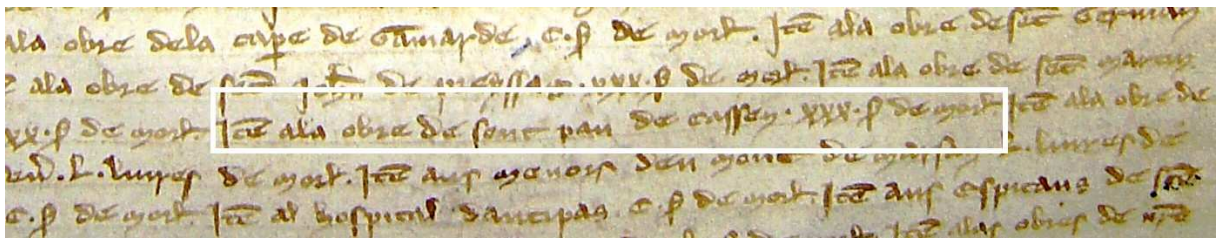 ala obre dela cape de Gamarde . C . S de morl . Item ala obre de sent German
ala obre de sent Johan de preyssac . xxx . S de morl . Item ala obre de sent martin
xx . S de morl Item ala obre de sent pau de Cassen . xxx . S de morl Item ala obre de
. L . liures de morl . Item aus menors deu mont de L . liures de
C . S de morl Item al hospital dantipas C S de morl . Item aus Espitaus de sent
alas obres de